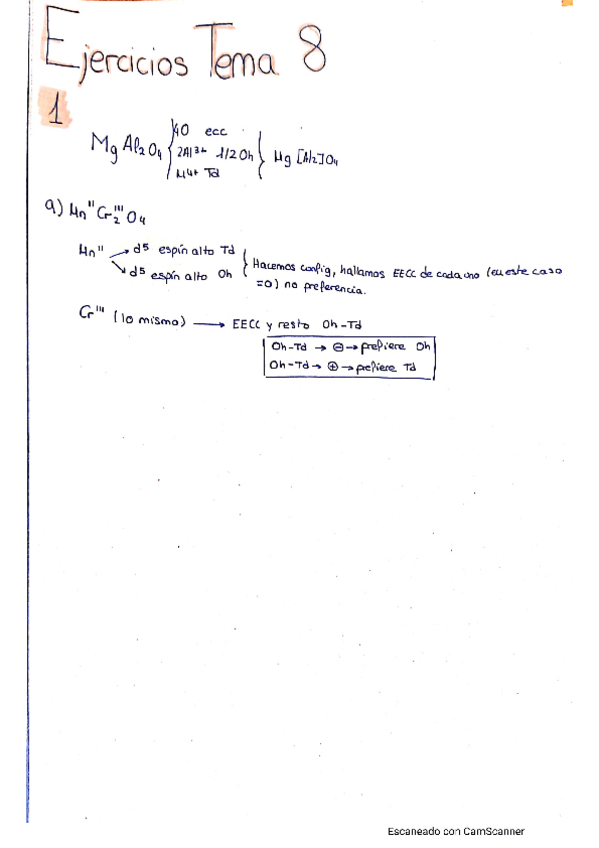 Ejercicios Tema 8
1
Mg Al2O4 { 4O ecc
2Al3+ 1/2 Oh } Mg [Al2]O4
Td
a) Mn" Cr2"' O4
Mn" → d5 espín alto Td
↘ d5 espín alto Oh { Hacemos config, hallamos EECC de cada uno (en este caso
=0) no preferencia.
Cr"' (lo mismo) → EECC y resto Oh-Td
Oh-Td → ⊖ → prefiere Oh
Oh-Td → ⊕ → prefiere Td
Escaneado con CamScanner